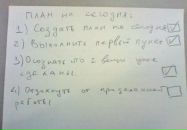 ПЛАН НА СЕГОДНЯ:
1) Создать план на сегодня
2) Выполнить первый пункт
3) Осознать что 2 вещи уже
сделаны.
4) Отдохнуть от проделанной
работы!